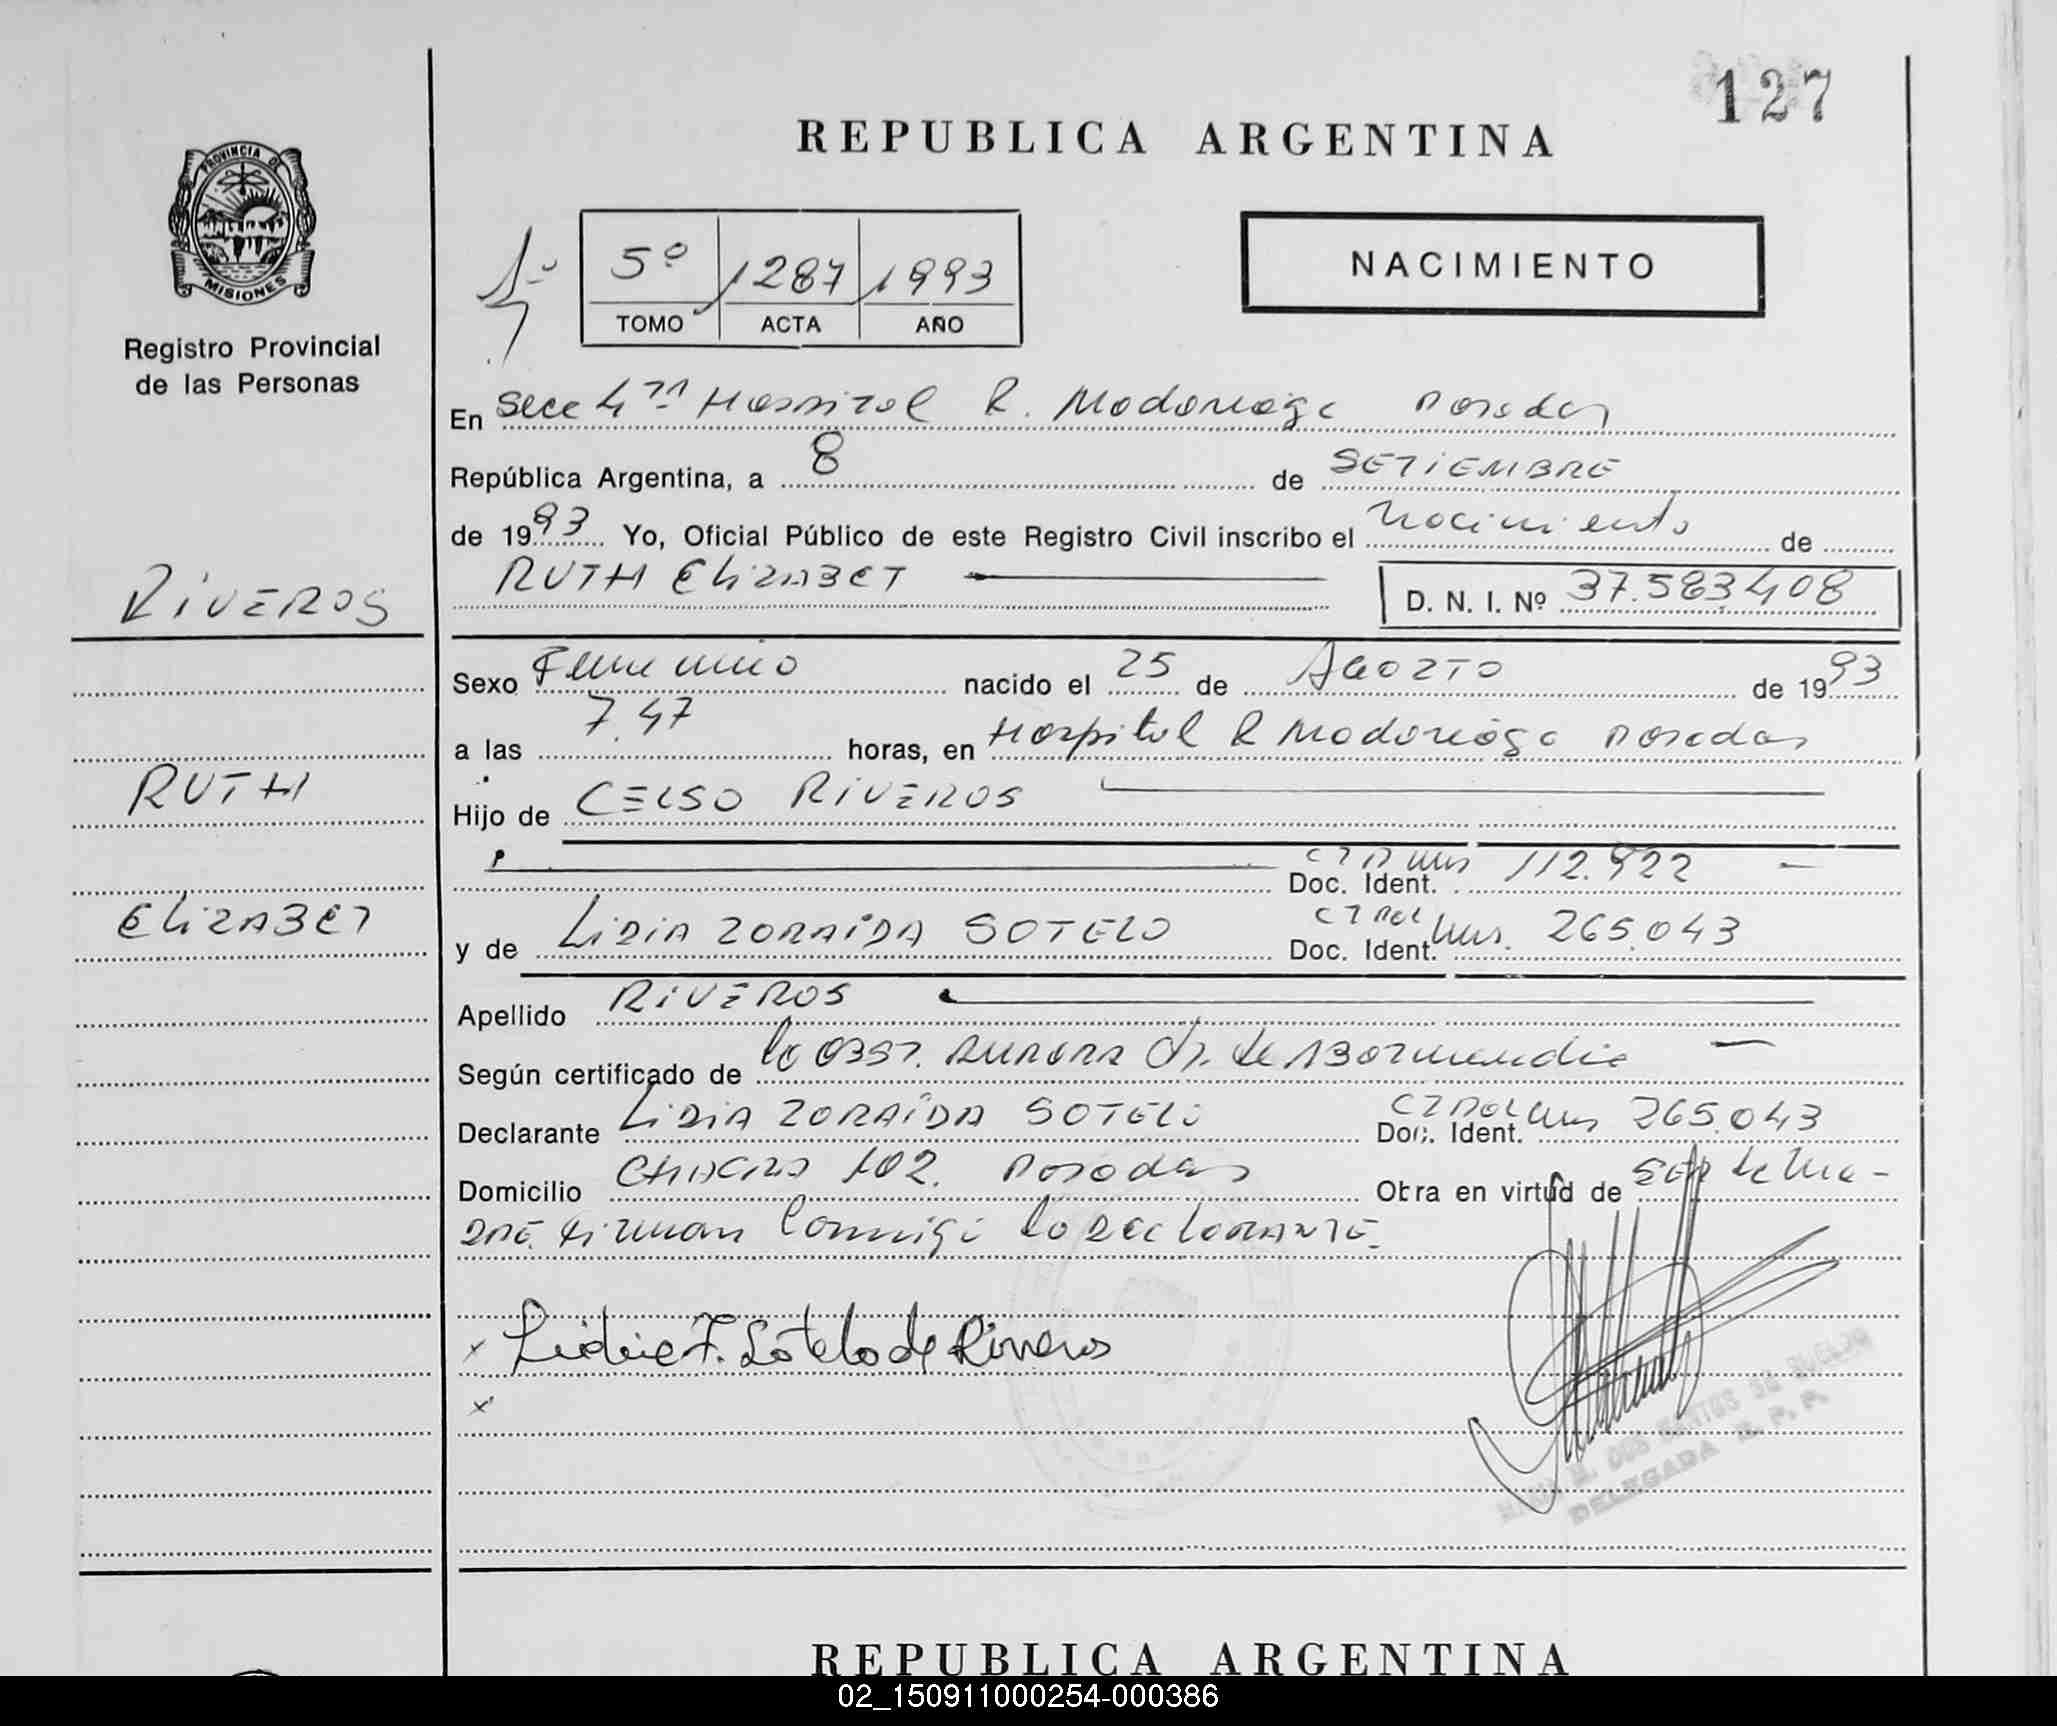 127
REPUBLICA ARGENTINA
PROVINCIA DE
MISIONES
Registro Provincial
de las Personas
5º 1287 1993
TOMO ACTA AÑO
NACIMIENTO
En Secc 4ta Hospital R. Madariaga Posadas
República Argentina, a 8 de SETIEMBRE
de 1993 Yo, Oficial Público de este Registro Civil inscribo el Nacimiento de
RIVEROS
RUTH ELIZABET
D. N. I. Nº 37.583.408
Sexo Femenino nacido el 25 de AGOZTO de 1993
a las 7.47 horas, en Hospital R Madariaga Posadas
RUTH
Hijo de CELSO RIVEROS
Doc. Ident. 112.922
ELIZABET
y de LIDIA ZORAIDA SOTELO Doc. Ident. 265.043
Apellido RIVEROS
Según certificado de la OBST. AURORA de
Declarante LIDIA ZORAIDA SOTELO Doc. Ident. 265.043
Domicilio CHACRA 102. Posadas Obra en virtud de SER la Ma-
DRE. Firman Conmigo la DECLARANTE.
x Lidia Z. Sotelo de Riveros
x
DOS SANTOS DE
DELEGADA R. P. P.
REPUBLICA ARGENTINA
02_150911000254-000386